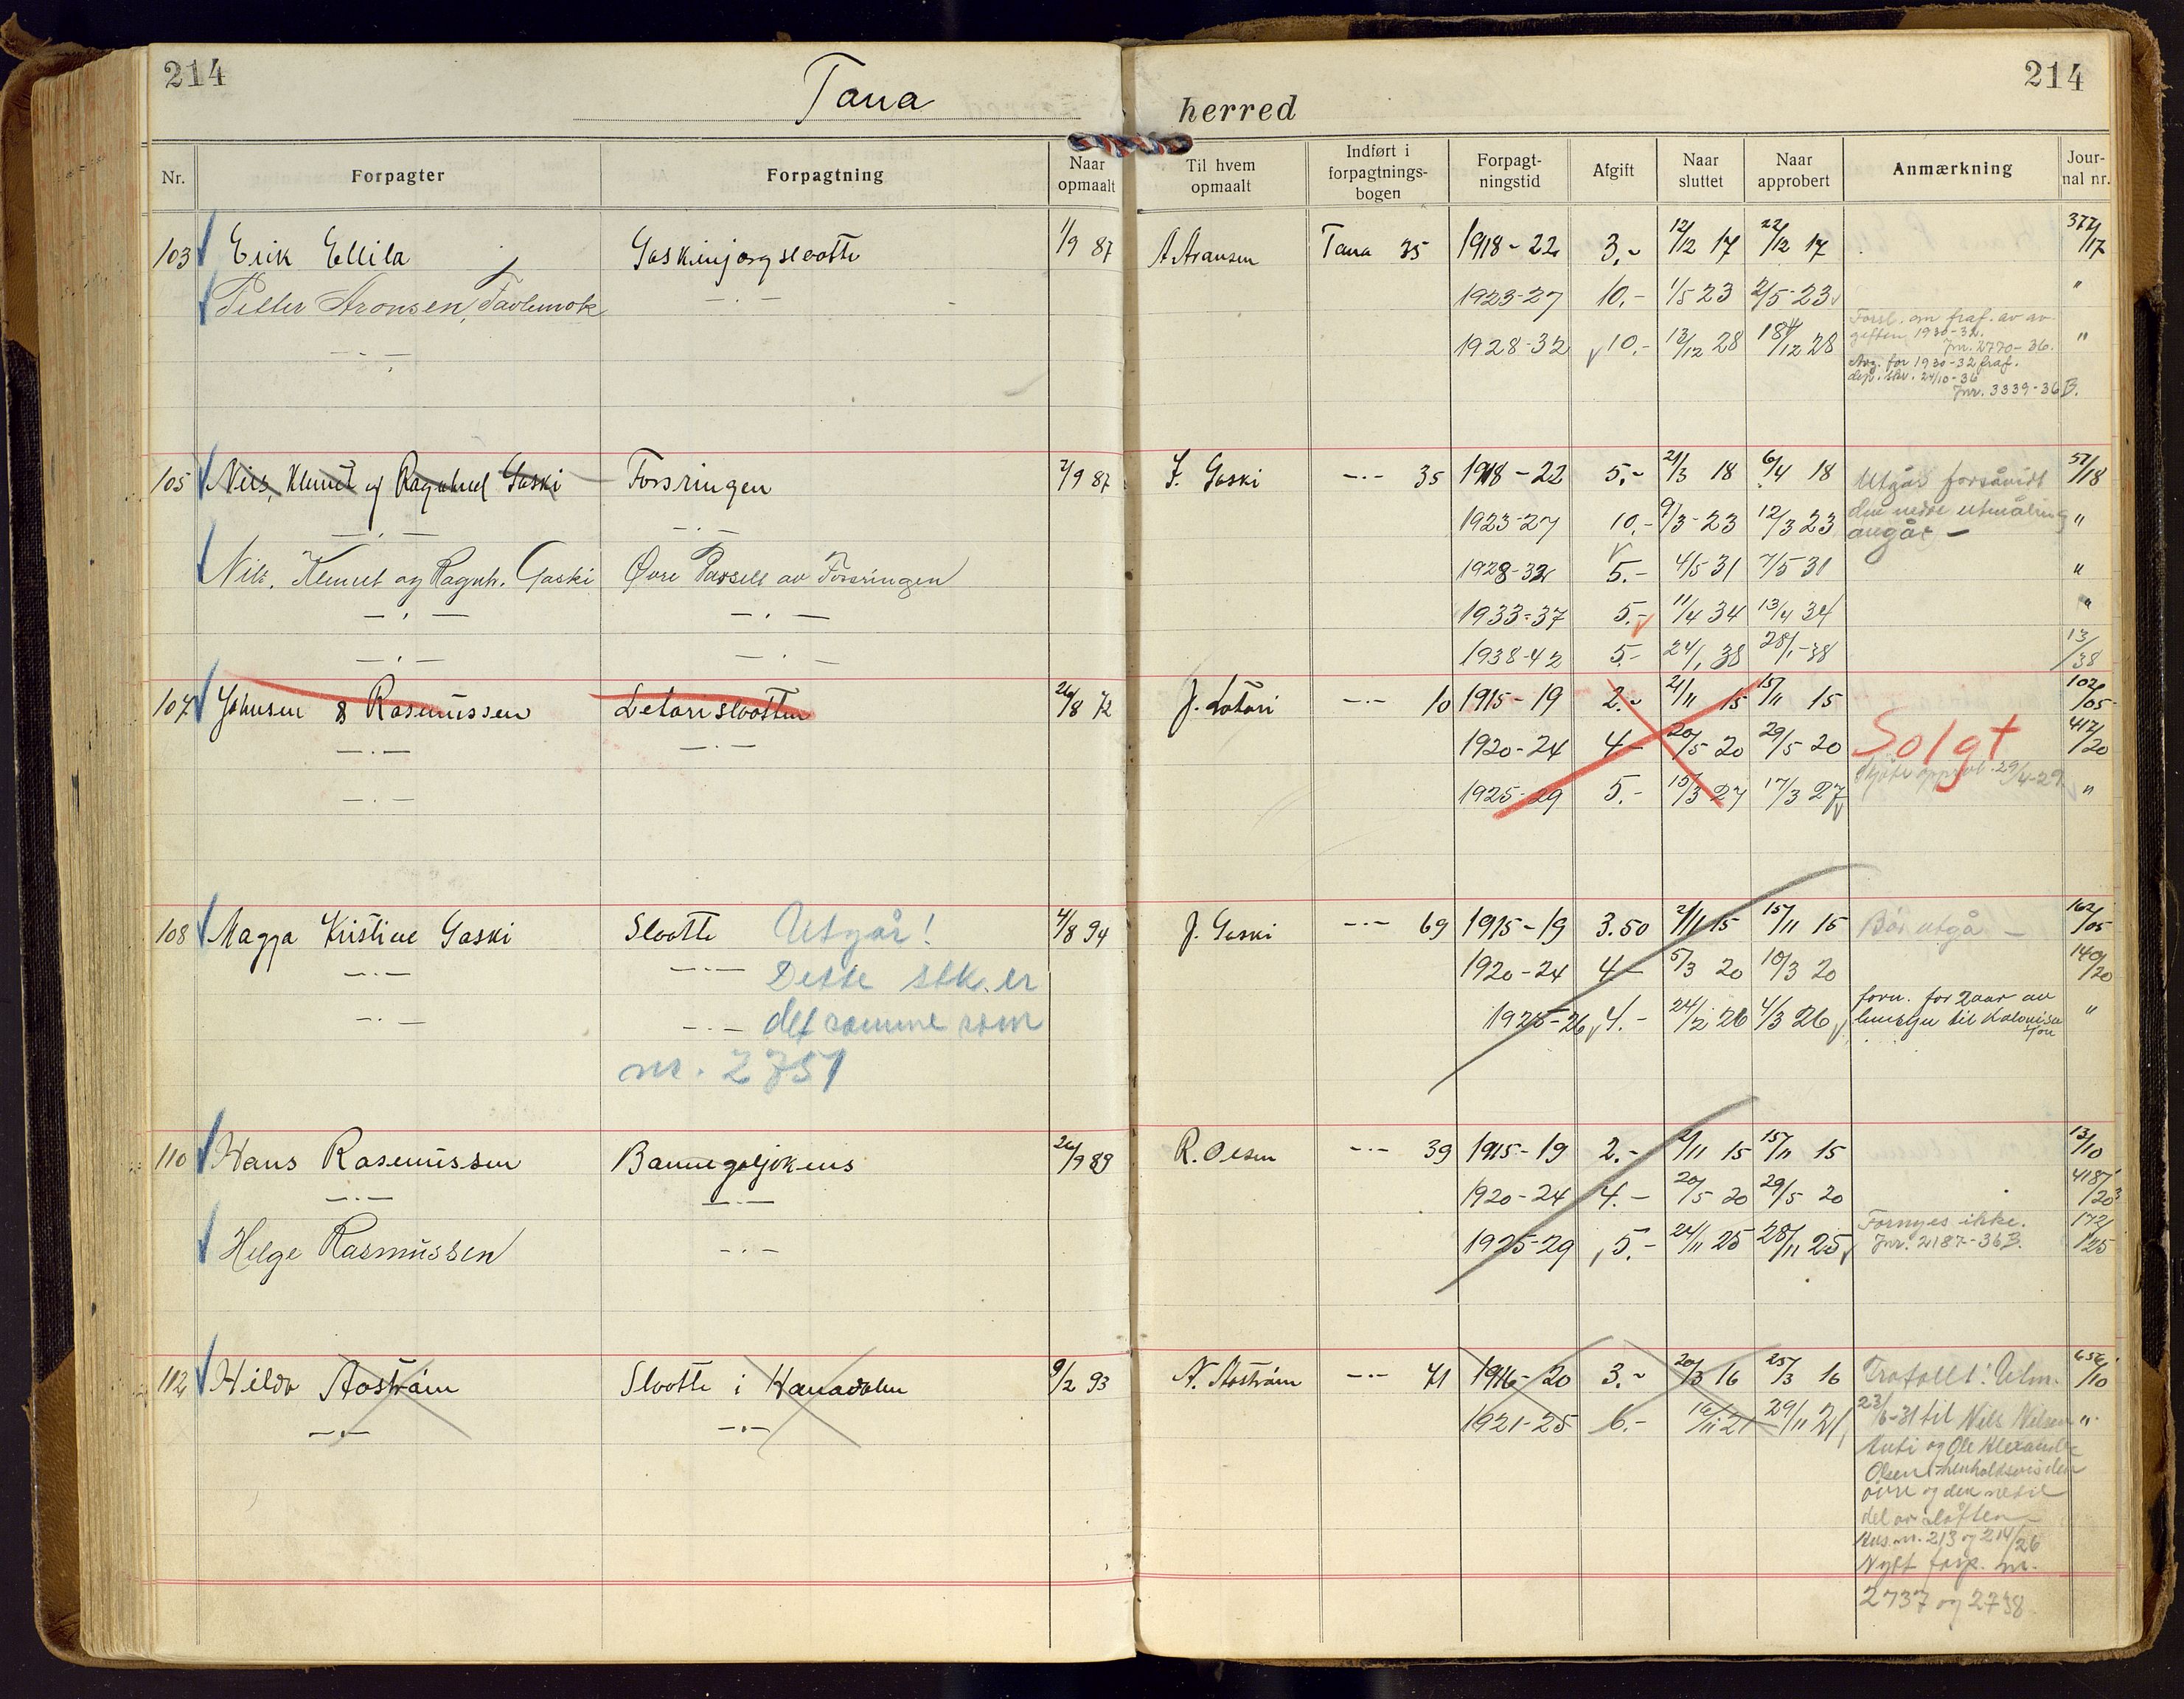 214
Tana herred
214
Nr. Forpagter Forpagtning Naar opmaalt Til hvem opmaalt Indført i forpagtnings-bogen Forpagt-ningstid Afgift Naar sluttet Naar approbert Anmærkning Jour-nal nr.
103 Erik Ellila Gaskinjargslaatte 1/9 87 A Aransen Tana 35 1918-22 3,- 12/12 17 22/12 17 377/17
Petter Aronsen, —.— 1923-27 10.- 1/5 23 2/5-23 "
—.— 1928-32 10.- 13/12 28 18/12 28 "
Forsl. om fraf. av av-
giften 1930-32.
Jnr. 2770-36.
Avg. for 1930-32 fraf.
dep. skr. 24/10-36
Jnr. 3339-36 B.
105 Nils, Klemet og Ragnhild Gaski Forsringen 2/9 87 J. Gaski —.— 35 1918-22 5,- 21/3 18 6/4 18 Utgår forsåvidt 57/18
—.— —.— 1923-27 10.- 9/3-23 12/3 23 den nedre utmåling "
angår -
Nils, Klemet og Ragnh. Gaski Øvre Parsell av Forsringen 1928-32 5.- 4/5 31 7/5 31 "
—.— —.— 1933-37 5.- 11/4 34 13/4 34 "
—.— —.— 1938-42 5.- 24/1 38 28/1-38 13/38
107 Johnsen & Rasmussen Letarislaatten 26/8 72 J. Lotari —.— 10 1915-19 2.- 2/11 15 15/11 15 102/05
—.— —.— 1920-24 4- 20/5 20 29/5 20 Solgt 417/20
—.— 1925-29 5.- 15/3 27 17/3 27 Skjöte approb. 29/4-29. "
108 Magga Kristine Gaski Slaatte Utgår! 4/8 94 J. Gaski —.— 69 1915-19 3.50 2/11 15 15/11 15 Bör utgå - 162/05
—.— —.— Dette stk. er 1920-24 4- 5/3 20 10/3 20 140/20
—.— —.— det samme som 1925-26 4.- 24/2 26 4/3 26 forn. for 2 aar av "
hensyn til Kolonisa
tion
nr. 2751
110 Hans Rasmussen 26/9 89 R. Olsen —.— 39 1915-19 2.- 2/11 15 15/11 15 13/10
—.— —.— 1920-24 4.- 20/5 20 29/5 20 418/20
Helge Rasmussen —.— 1925-29 5.- 24/11 25 28/11 25 Fornyes ikke. 172/25
Jnr. 2187-36B.
112 Hilda Aaström Slaatte i Hanadalen 9/2 93 N. Aaström —.— 71 1916-20 3.- 20/3 16 25/3 16 Frafallt. Utm. 656/10
—.— —.— 1921-25 6.- 16/11 21 29/11 21 23/6-31 til Nils Nilsen "
Anti og Ole Alexander
Olsen henholdsvis den
övre og den nedre
del av slåtten
nr. 213 og 214/26
Nytt forp. nr.
2737 og 2738